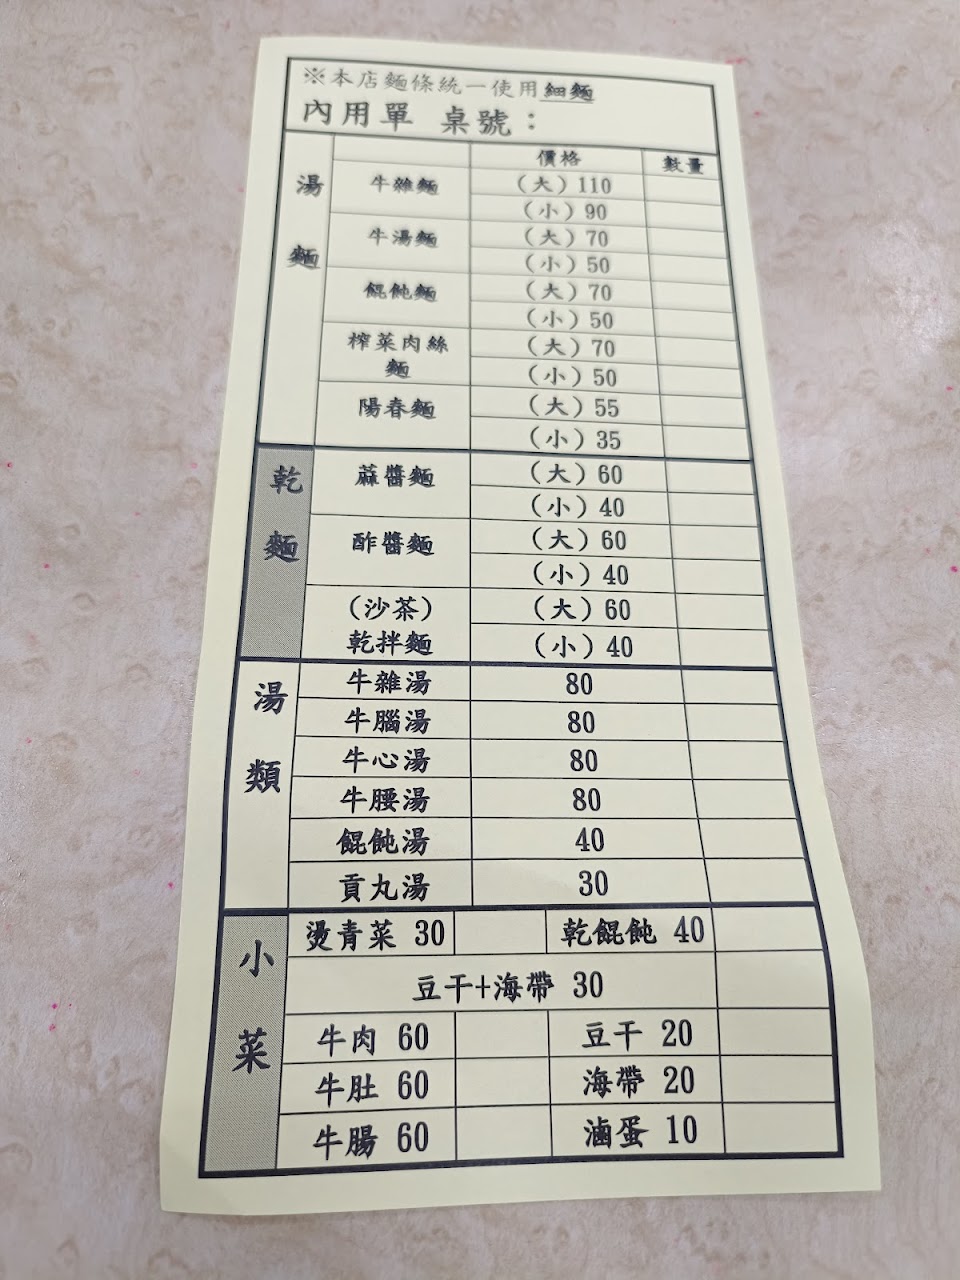 ※本店麵條統一使用細麵
內用單 桌號：
價格 數量
湯麵
牛雜麵 (大) 110
(小) 90
牛湯麵 (大) 70
(小) 50
餛飩麵 (大) 70
(小) 50
榨菜肉絲麵 (大) 70
(小) 50
陽春麵 (大) 55
(小) 35
乾麵
蔴醬麵 (大) 60
(小) 40
酢醬麵 (大) 60
(小) 40
(沙茶)
乾拌麵 (大) 60
(小) 40
湯類
牛雜湯 80
牛腦湯 80
牛心湯 80
牛腰湯 80
餛飩湯 40
貢丸湯 30
小菜
燙青菜 30 乾餛飩 40
豆干+海帶 30
牛肉 60 豆干 20
牛肚 60 海帶 20
牛腸 60 滷蛋 10